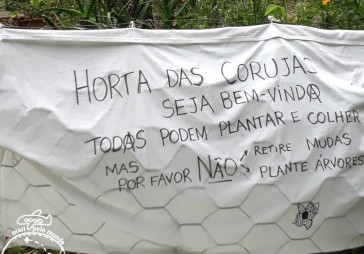 HORTA DAS CORUJAS
SEJA BEM-VINDA
TODAS PODEM PLANTAR E COLHER
MAS POR FAVOR NÃO: RETIRE MUDAS
PLANTE ÁRVORES
mari pelo mundo